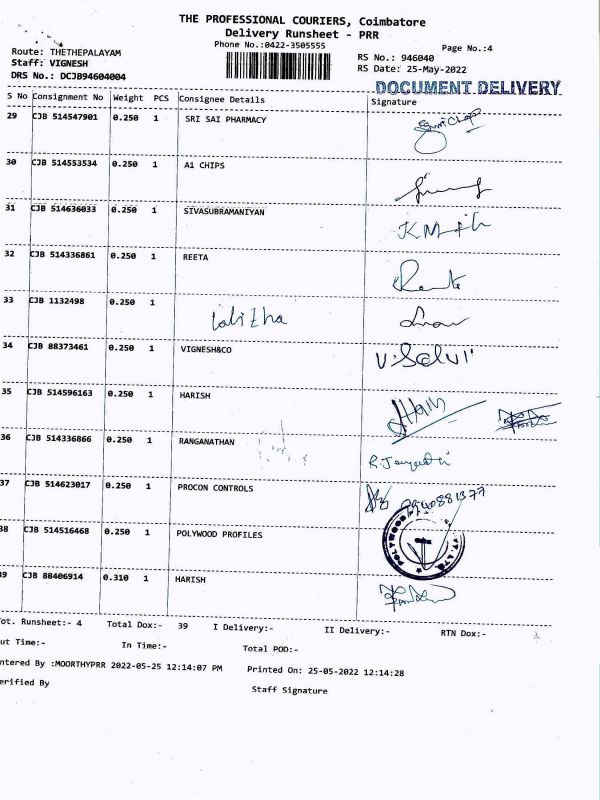 THE PROFESSIONAL COURIERS, Coimbatore
Delivery Runsheet - PRR
Phone No.:0422-3505555
Page No.:4
Route: THETHEPALAYAM
Staff: VIGNESH
DRS No.: DCJB94604004
RS No.: 946040
RS Date: 25-May-2022
DOCUMENT DELIVERY
S No Consignment No Weight PCS Consignee Details Signature
29 CJB 514547901 0.250 1 SRI SAI PHARMACY
30 CJB 514553534 0.250 1 A1 CHIPS
31 CJB 514636033 0.250 1 SIVASUBRAMANIYAN
32 CJB 514336861 0.250 1 REETA
33 CJB 1132498 0.250 1 Lalitha
34 CJB 88373461 0.250 1 VIGNESH&CO V.Selvi
35 CJB 514596163 0.250 1 HARISH
36 CJB 514336866 0.250 1 RANGANATHAN
37 CJB 514623017 0.250 1 PROCON CONTROLS
38 CJB 514516468 0.250 1 POLYWOOD PROFILES
POLYWOOD
39 CJB 88406914 0.310 1 HARISH
ot. Runsheet:- 4 Total Dox:- 39 I Delivery:- II Delivery:- RTN Dox:-
ut Time:- In Time:- Total POD:-
ntered By :MOORTHYPRR 2022-05-25 12:14:07 PM Printed On: 25-05-2022 12:14:28
erified By Staff Signature